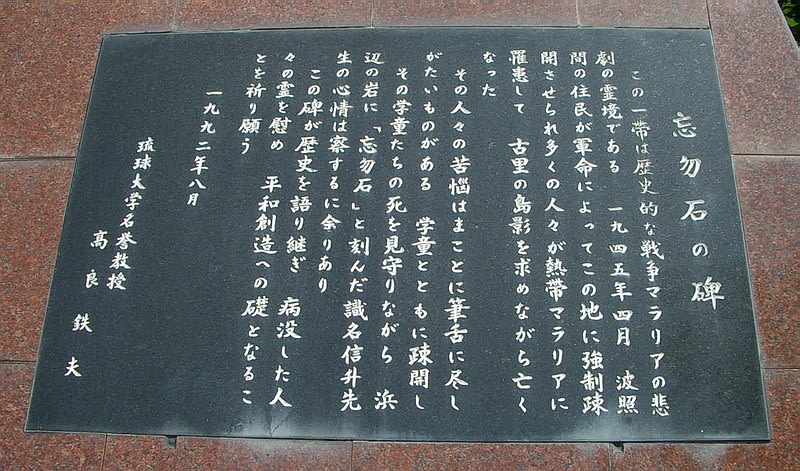 忘勿石の碑
この一帯は歴史的な戦争マラリアの悲
劇の霊境である　一九四五年四月　波照
間の住民が軍命によってこの地に強制疎
開させられ多くの人々が熱帯マラリアに
罹患して　古里の島影を求めながら亡く
なった
その人々の苦悩はまことに筆舌に尽し
がたいものがある　学童とともに疎開し
その学童たちの死を見守りながら　浜
辺の岩に「忘勿石」と刻んだ識名信升先
生の心情は察するに余りあり
この碑が歴史を語り継ぎ　病没した人
々の霊を慰め　平和創造への礎となるこ
とを祈り願う
一九九二年八月
琉球大学名誉教授
高良鉄夫